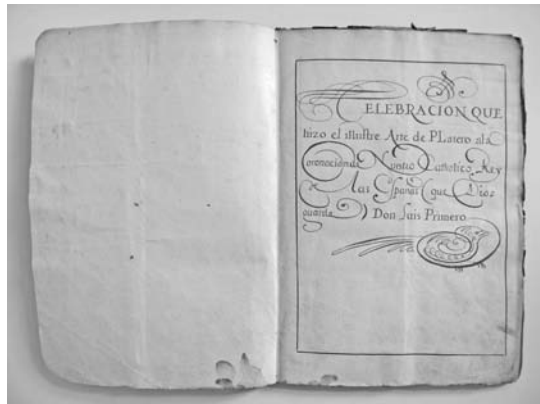 CELEBRACION QUE
hizo el illustre Arte de PLatero ala
Coronacion de Nuestro Catholico Rey
de las Españas (que Dios
guarde) Don Luis Primero